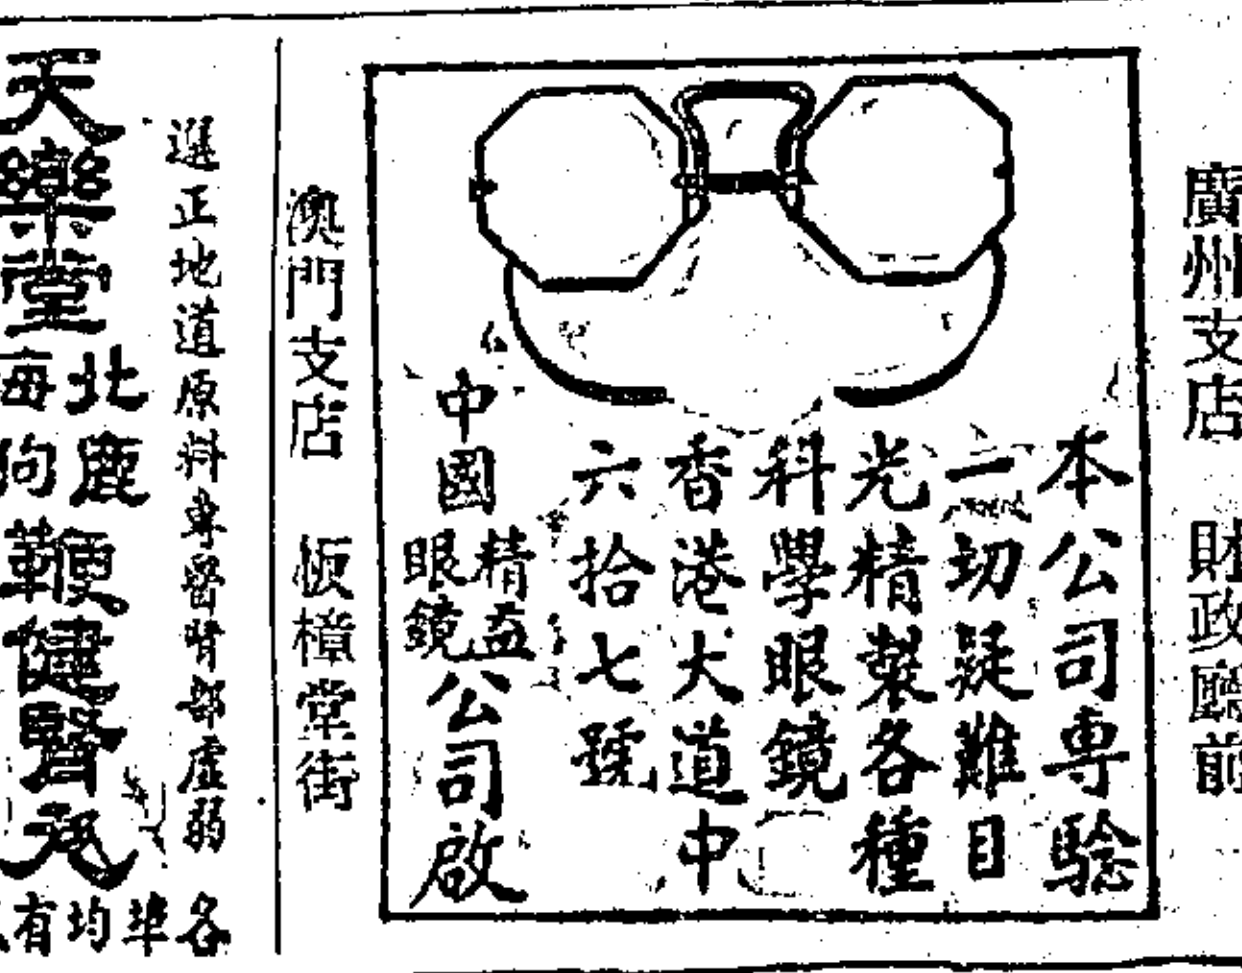 廣州支店 財政廳前
本公司專驗
一切疑難目
光精製各種
科學眼鏡
香港大道中
六拾七號
中國精益眼鏡公司啟
澳門支店 板樟堂街
選正地道原料專醫腎部虛弱
天樂堂
北鹿
海狗
鞭健腎丸
各埠均有